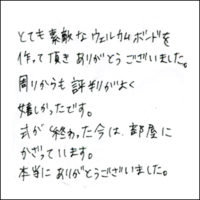 とても素敵なウェルカムボードを
作って頂きありがとうございました。
周りからも評判がよく
嬉しかったです。
式が終わった今は、部屋に
かざっています。
本当にありがとうございました。